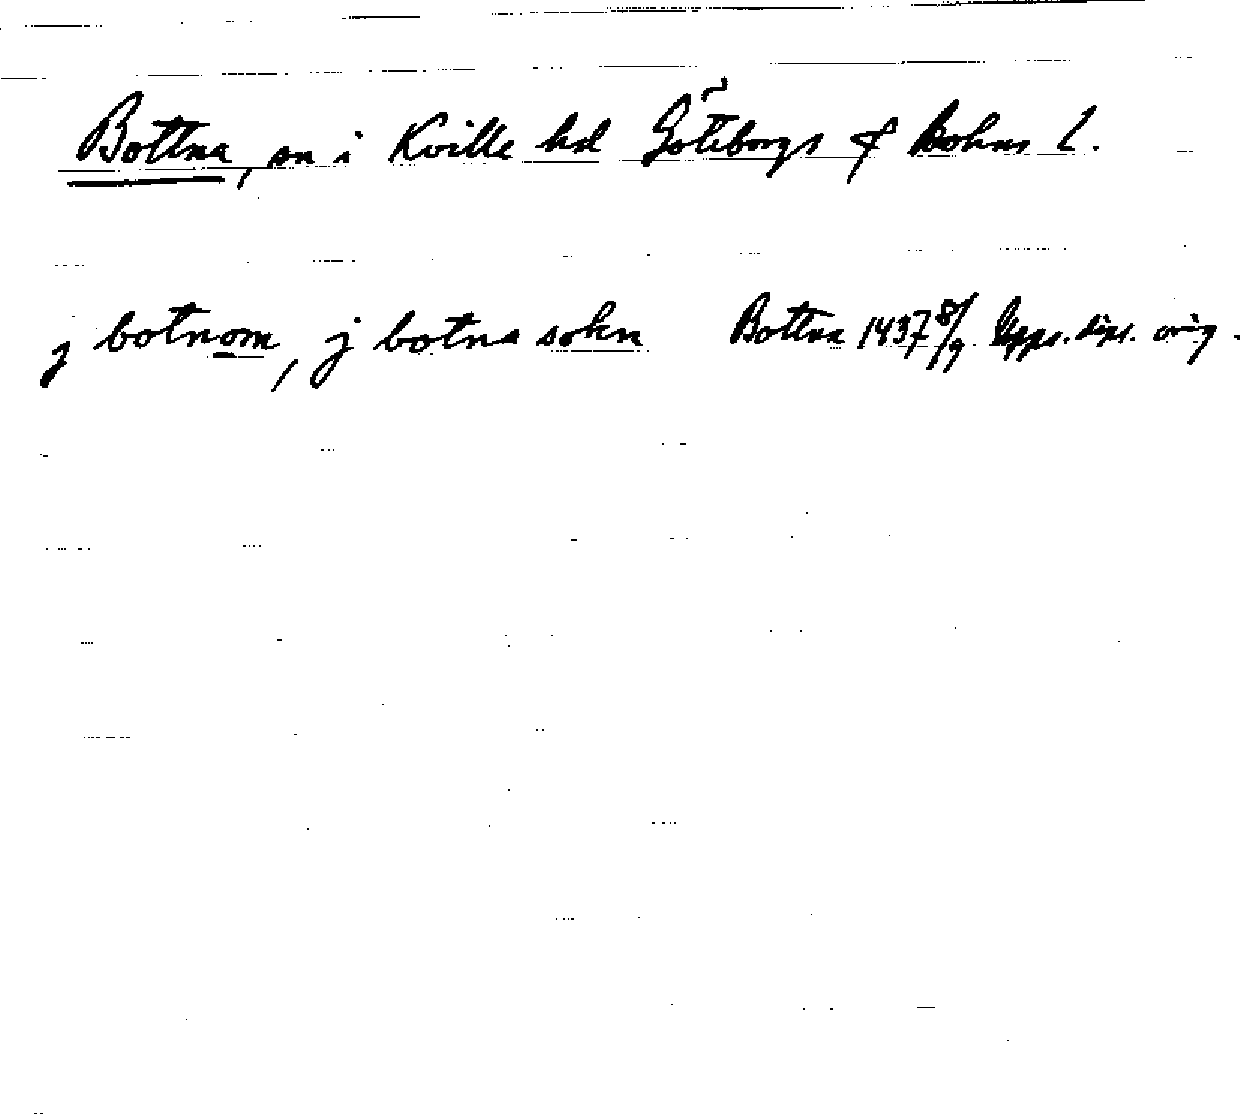 Bottna, sn i Kville hd Göteborgs & Bohus l.
j botnom, j botna sokn Bottna 1437 8/9 Upps. dipl. orig.